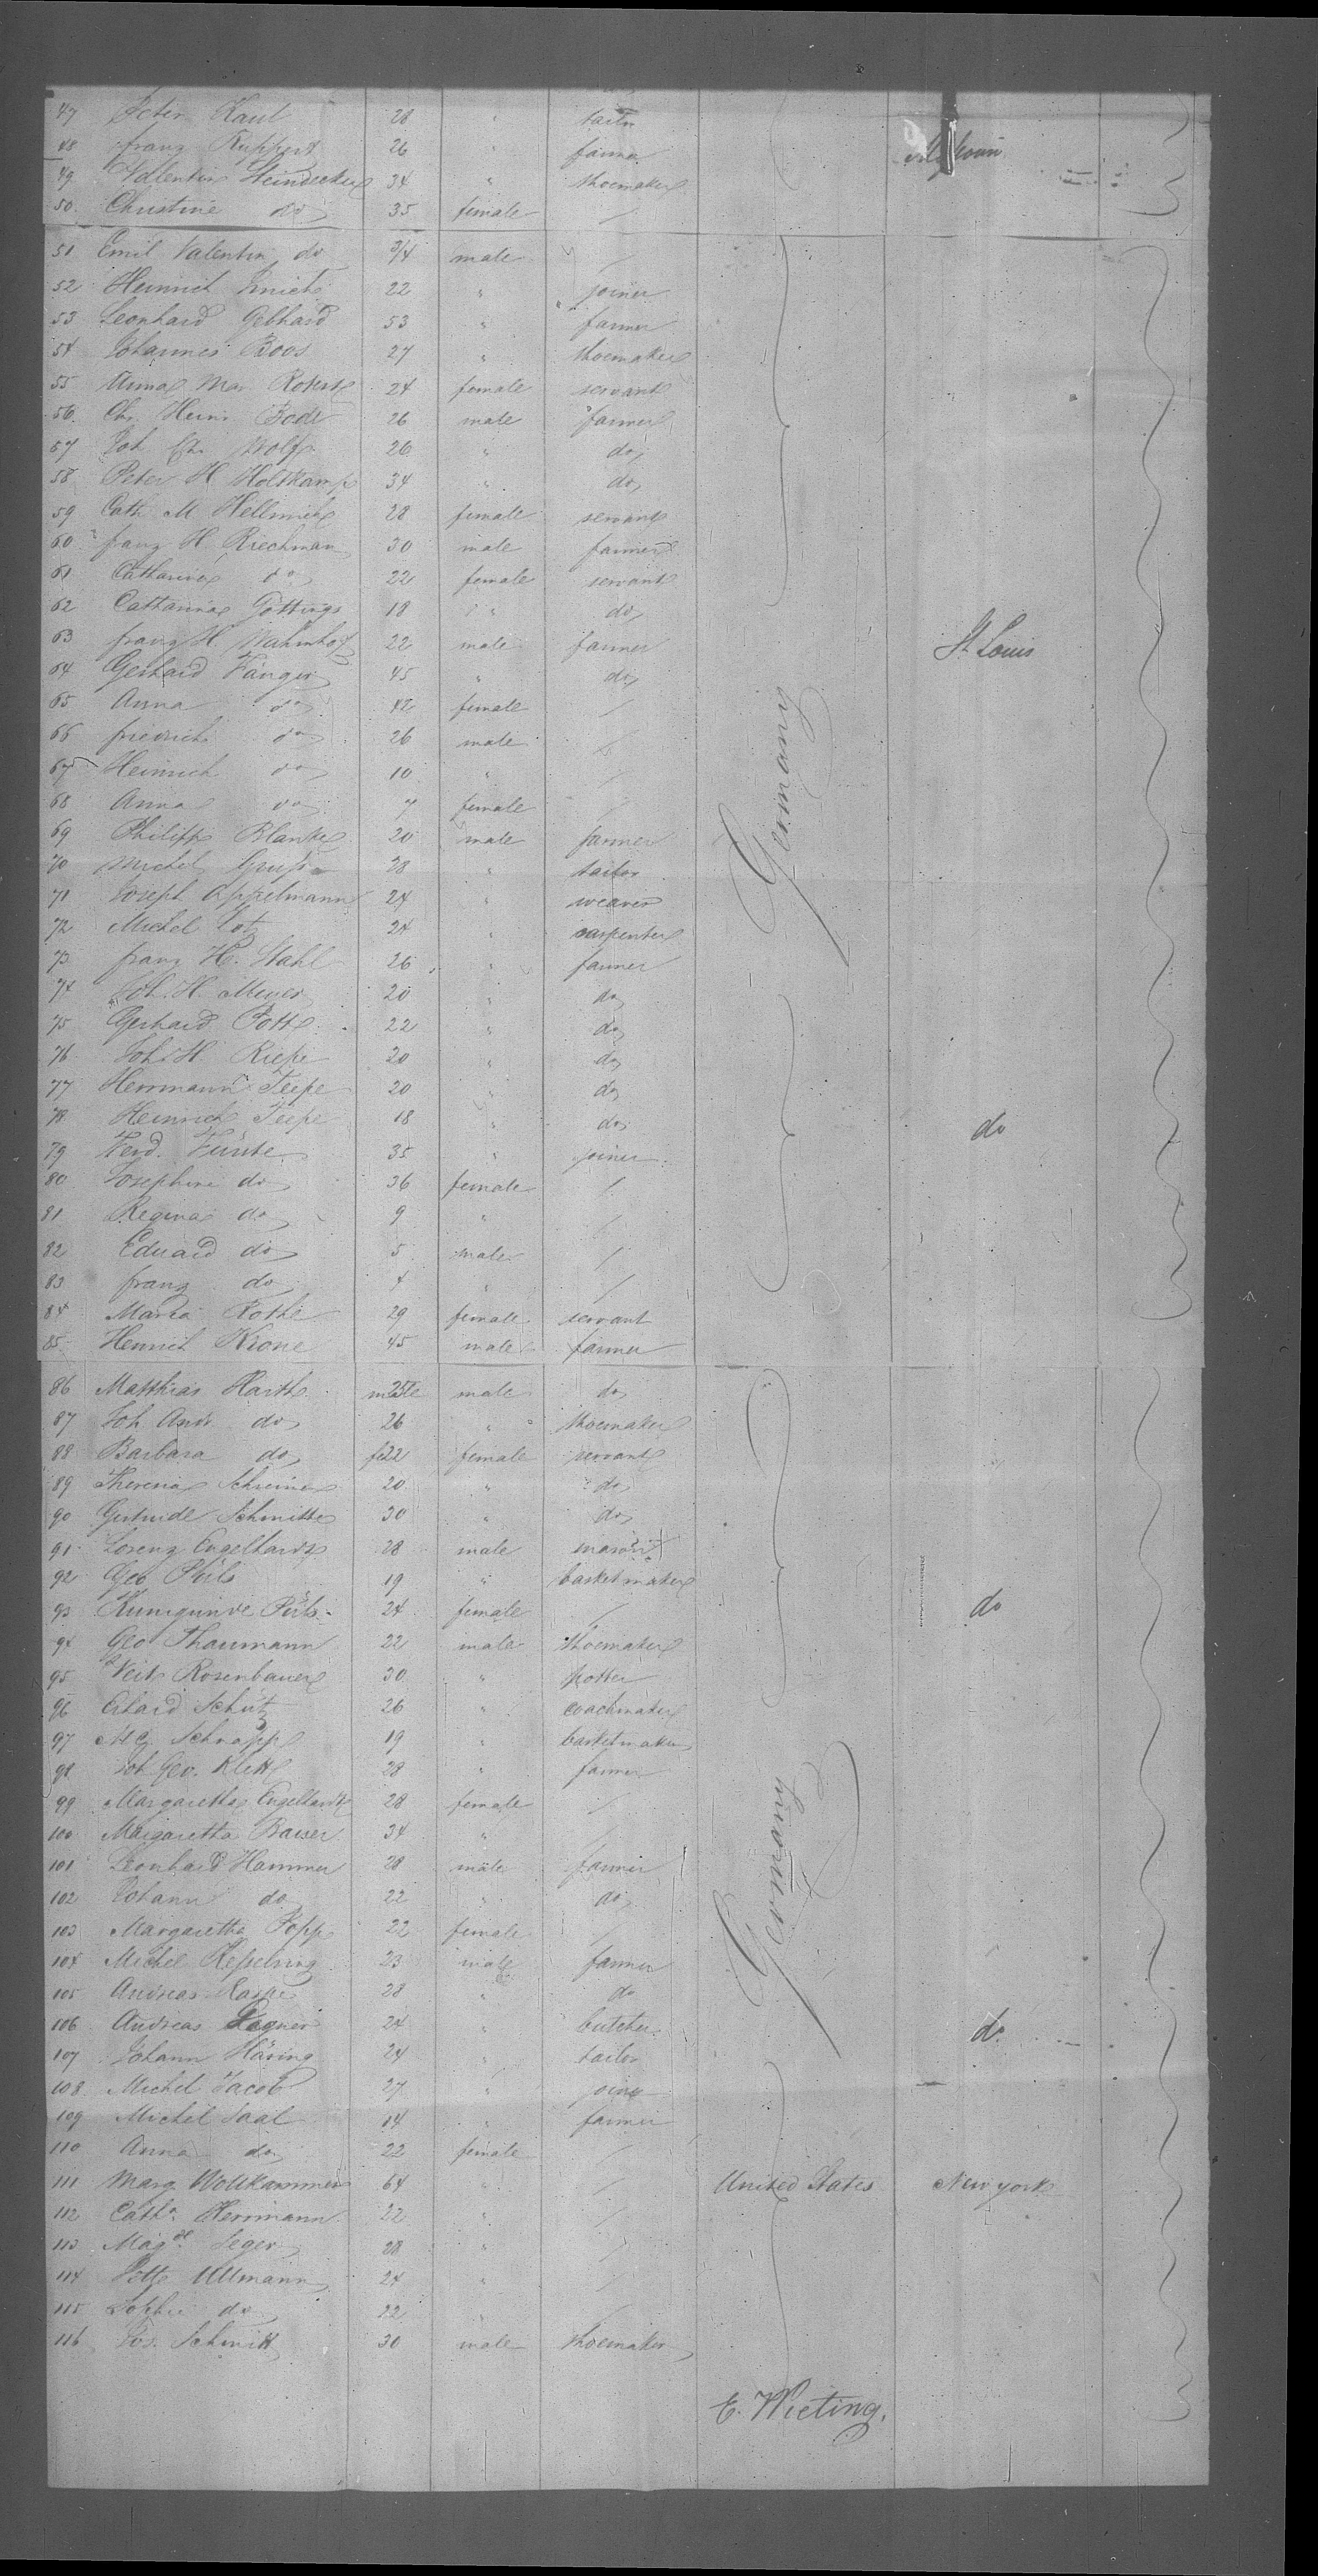 47 Peter Kaul 28 " tailor
48 Franz Ruppert 26 " farmer Missouri
49 Valentin Steindecker 34 " shoemaker
50 Christine do 35 female /
51 Emil Valentin do 3/4 male /
52 Heinrich 22 " joiner
53 Leonhard Gebhard 53 " farmer
54 Johannes Boos 27 " shoemaker
55 Anna Mar. 24 female servant
56 Chr. Heinr. Bode 26 male farmer
57 Joh. Wolf 26 " do
58 Peter H Holtkamp 34 " do
59 Cath M Hellmich 28 female servant
60 Franz H. Riechman 30 male farmer
61 Catharina do 22 female servant
62 Catharina Göttings 18 " do
63 Franz H. 22 male farmer St Louis
64 Gerhard Fänger 45 " do
65 Anna do 42 female /
66 Friedrich do 26 male /
67 Heinrich do 10 " /
68 Anna do 7 female /
69 Philipp Blanke 20 male farmer
70 Michel 28 " tailor
71 Joseph Appelmann 24 " weaver
72 Michel Lotz 24 " carpenter
73 Franz H. Stahl 26 " farmer
74 Joh. H. Meyer 20 " do
75 Gerhard Potts 22 " do
76 Joh. H. Riepe 20 " do
77 Herrmann Teepe 20 " do
78 Heinrich Teepe 18 " do do
79 Ferd. 35 " joiner
80 Josephine do 36 female /
81 Regina do 9 " /
82 Eduard do 5 male /
83 Franz do 4 " /
84 Maria Rothe 29 female servant
85 Heinrich Krone 45 male farmer
Germany
86 Matthias Harth 25 male do
87 Joh Andr do 26 " shoemaker
88 Barbara do 22 female servant
89 Theresia Schreiner 20 " do
90 Gertrude Schmitte 30 " do
91 Lorenz Engelhardt 28 male mason
92 Geo Püls 19 " basketmaker
93 Kunigunde Püls 24 female / do
94 Geo Thaumann 22 male shoemaker
95 Veit Rosenbauer 30 " potter
96 Erhard Schütz 26 " coachmaker
97 Schnapp 19 " basketmaker
98 Joh Geo. Klett 28 " farmer
99 Margaretha Engelhardt 28 female /
100 Margaretha Bauer 34 " /
101 Leonhard Hammer 28 male farmer
102 Johann do 22 " do
103 Margaretha Popp 22 female /
104 Michel Kesselring 23 male farmer
105 Andreas 28 " do
106 Andreas Wagner 24 " butcher do
107 Johann Häring 24 " tailor
108 Michel Jacob 27 " joiner
109 Michel Saal 14 " farmer
110 Anna do 22 female /
111 Marg. Wollkammer 64 " / United States New york
112 Cath. Herrmann 22 " /
113 Magd. Seger 28 " /
114 Ullmann 24 " /
115 Sophie do 22 " /
116 Jos. Schmitt 30 male shoemaker
Germany
E. Wieting.